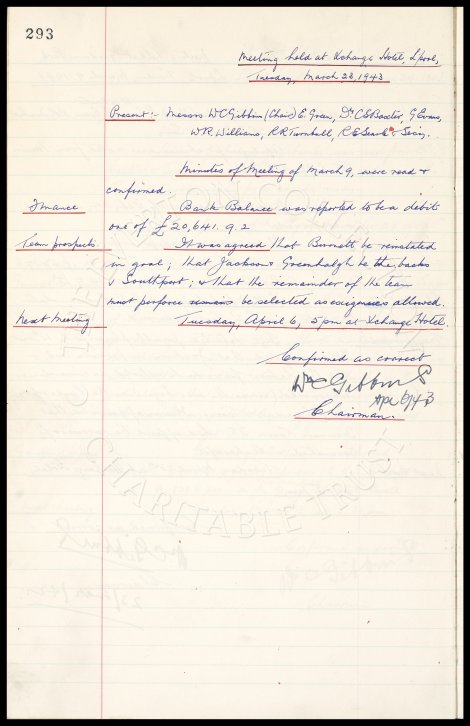 293
Meeting held at Xchange Hotel, Lpool,
Tuesday, March 23, 1943
Present:- Messrs WCGibbins (Chair) E. Green, Dr CSBaxter, G Evans,
WR. Williams, R.R Turnbull, R E Searle & Secy.
Minutes of Meeting of March 9, were read &
confirmed.
Finance Bank Balance was reported to be a debit
one of £20,641.9.2
Team prospects It was agreed that Burnett be reinstated
in goal; that Jackson & Greenhalgh be the backs
v Southport; & that the remainder of the team
must perforce be selected as exigencies allowed.
Next Meeting Tuesday, April 6, 5pm at Xchange Hotel.
Confirmed as correct
WC Gibbins
Apl 6/43
Chairman.
CHARITABLE TRUST